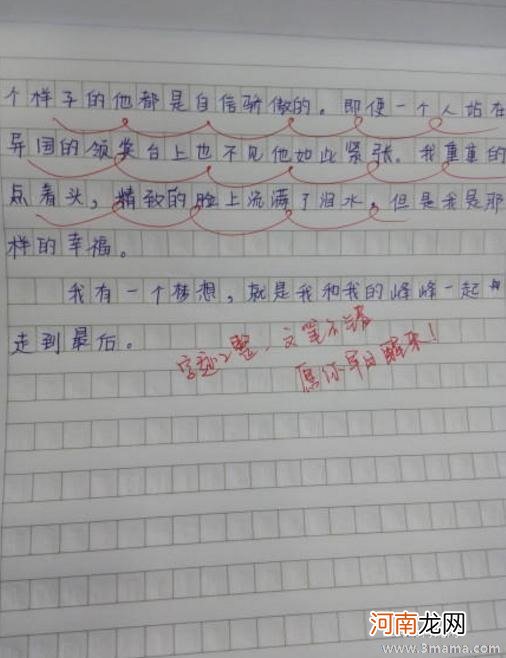 个样子的他都是自信骄傲的。即便一个人站在
异国的领奖台上也不见他如此紧张。我重重的
点着头，精致的脸上流满了泪水，但是我是那
样的幸福。
我有一个梦想，就是我和我的峰峰一起
走到最后。
字迹工整，文笔不错
愿你早日醒来！
河南龙网
www.3mama.com